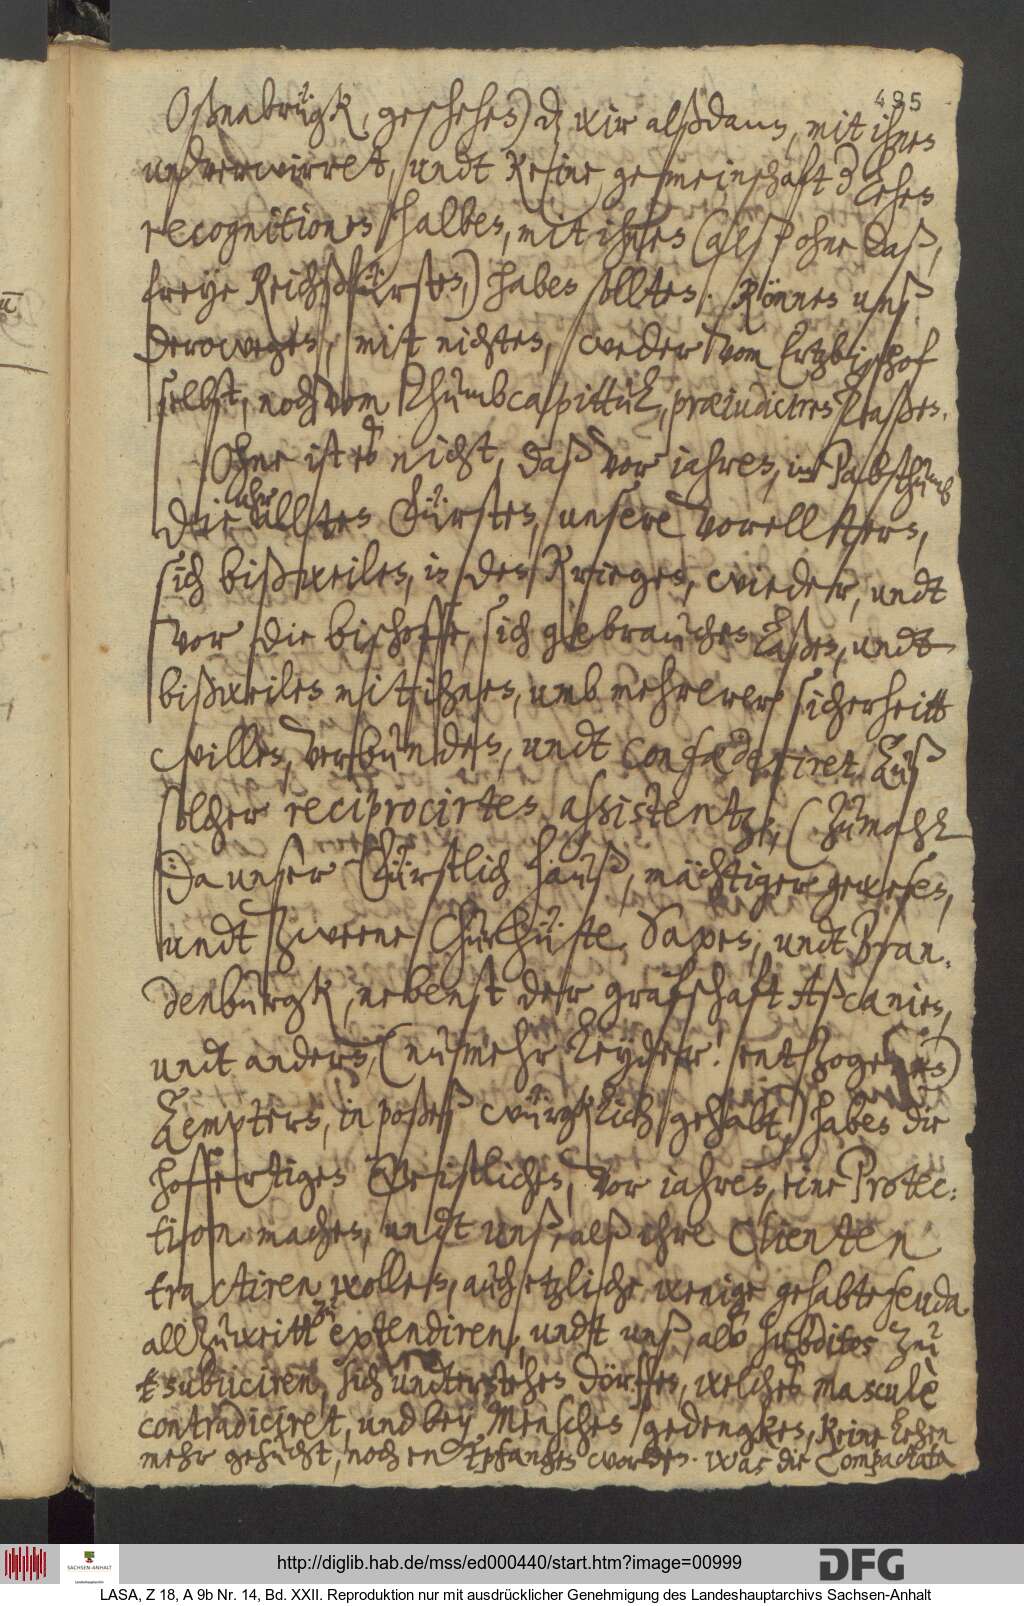 495
Oßnabrügk, geschehen) dz wir alßdann, mit ihnen
unverwirret, undt keine gemeinschaft der Lehen
recognitionen halben, mit ihnen (als ohne daß,
freye Reichßfürsten,) haben sollten. Können unß
derowegen, mit nichten, weder vom Ertzbischof
selbst, noch vom Thumbcapittul, præiudiciren laßen.
Ohne ist es nicht, daß vor iahren, im Pabsthumb
die uhralten Fürsten, unsere Vorelltern,
sich bißweilen, in den Kriegen, wieder, undt
vor die bischoffe, sich gebrauchen laßen, undt
bißweilen mit ihnen, umb mehrerer sicherheitt
willen, verbunden, undt confœderiret. Auß
solcher reciprocirten assistentz, (zumahl
da unser Fürstlich hauß, mächtiger gewesen,
undt zweene Churhüte, Saxen, undt Bran-
denburgk, nebenst der grafschaft Aßcanien,
undt andern, (nu mehr leyder! entzogenen)
Aemptern, in poßeß würgklich gehabt,) haben die
hoffertigen Geistlichen, vor iahren, eine Protec-
tion machen, undt unß, alß ihre Clienten
tractiren wollen, auch etzliche wenige gehabte feuda
allzuweitt zu extendiren, undt unß, alß subditos zu
subiiciren, sich understehen dörffen, welches masculè
contradiciret, und bey Menschen gedengken, keine Lehen
mehr gesucht, noch empfangen worden. Was die Compactata
http://diglib.hab.de/mss/ed000440/start.htm?image=00999
SACHSEN-ANHALT
DFG
LASA, Z 18, A 9b Nr. 14, Bd. XXII. Reproduktion nur mit ausdrücklicher Genehmigung des Landeshauptarchivs Sachsen-Anhalt